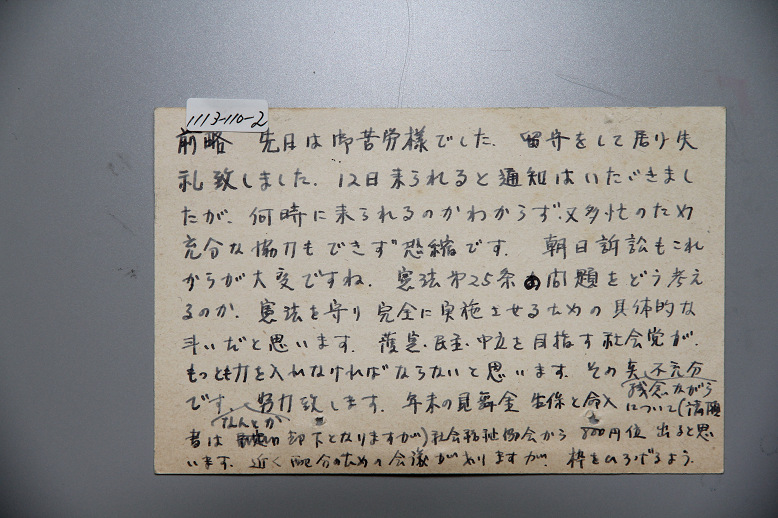 1113-110-2
前略 先日は御苦労様でした. 留守をして居り失
礼致しました. 12日来られると通知はいたできまし
たが、何時に来られるのかわからず、又多忙のため
充分な協力もできず恐縮です. 朝日訴訟もこれ
からが大変ですね. 憲法第25条の問題をどう考え
るのか. 憲法を守り完全に実施させるための具体的な
斗いだと思います. 護憲・民主・中立を目指す社会党が、
もっとも力を入れなければならないと思います. その点不充分
残念ながら
です. 努力致します. 年末の見舞金 生保と
について(
なんとか
者は 却下となりますが)社会福祉協会から 円位 出ると思
います. 近く配分のための会議がありますが. 枠をひろげるよう.